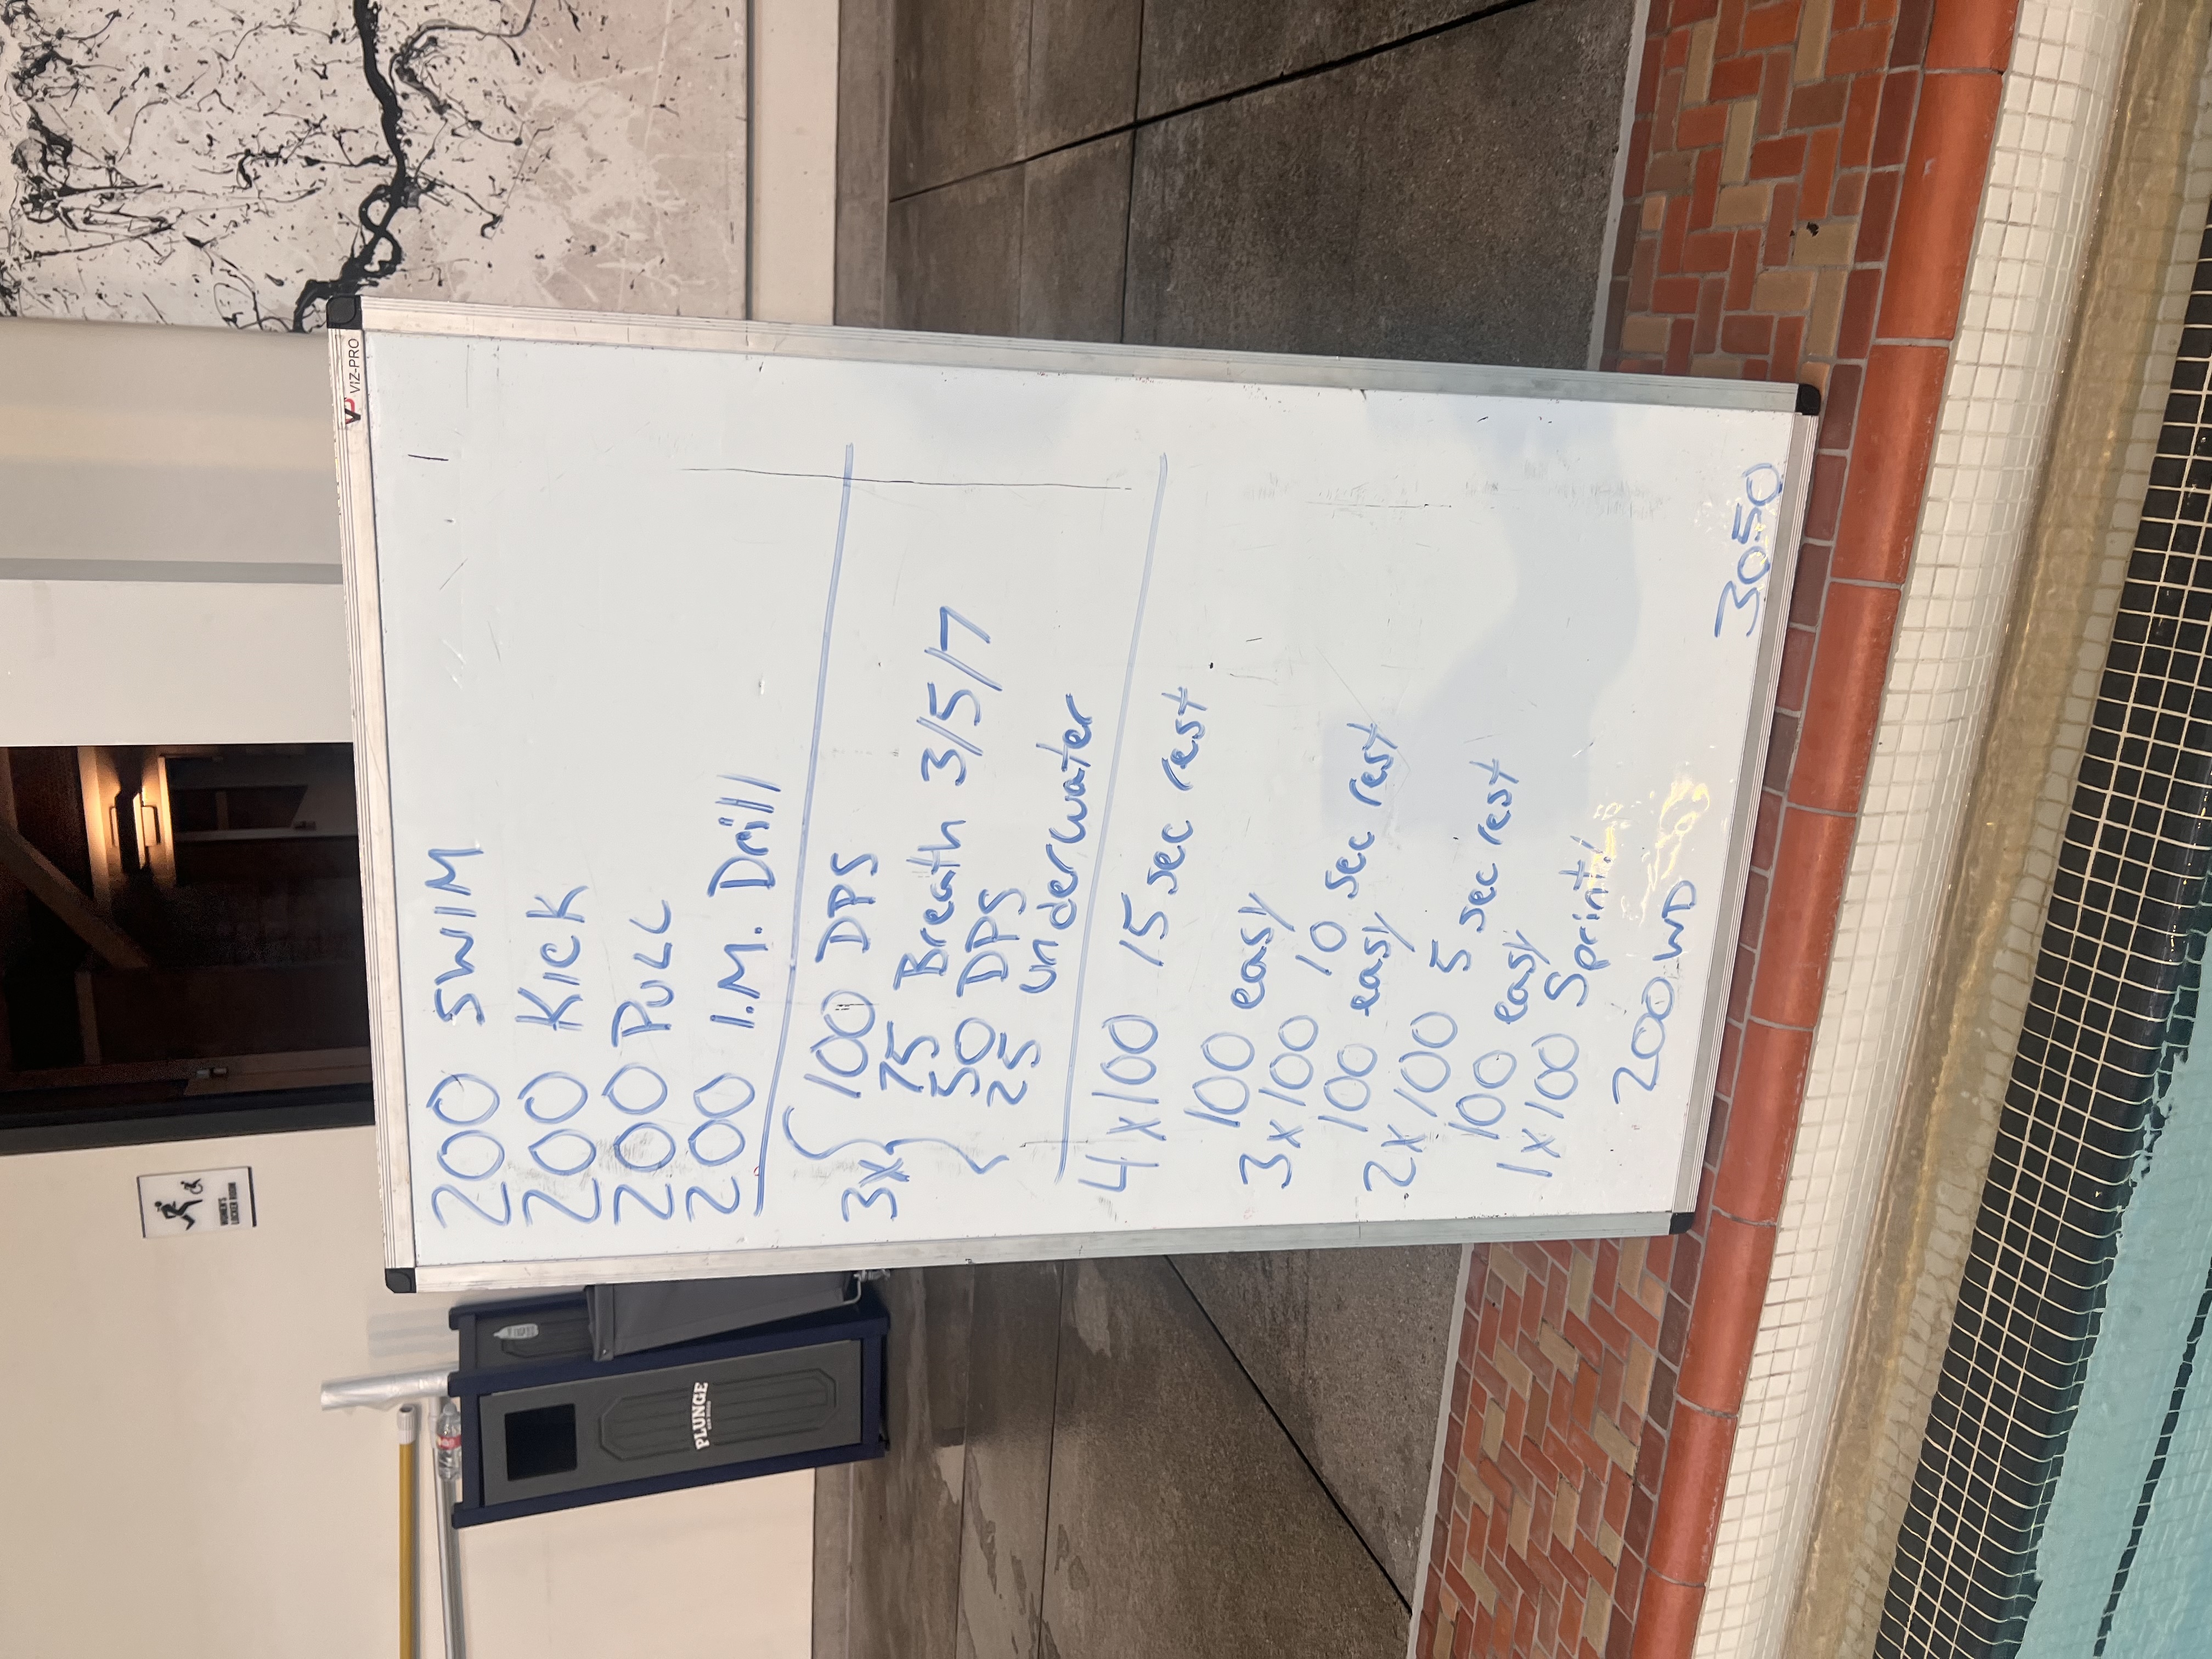 VIZ-PRO
200 SWIM
200 Kick
200 PULL
200 I.M. Drill
3x { 100 DPS
75 Breath 3/5/7
50 DPS
25 underwater
4 x 100 15 sec rest
100 easy
3 x 100 10 sec rest
100 easy
2 x 100 5 sec rest
100 easy
1 x 100 Sprint!
200 WD
3050
WOMEN'S
LOCKER ROOM
PLUNGE